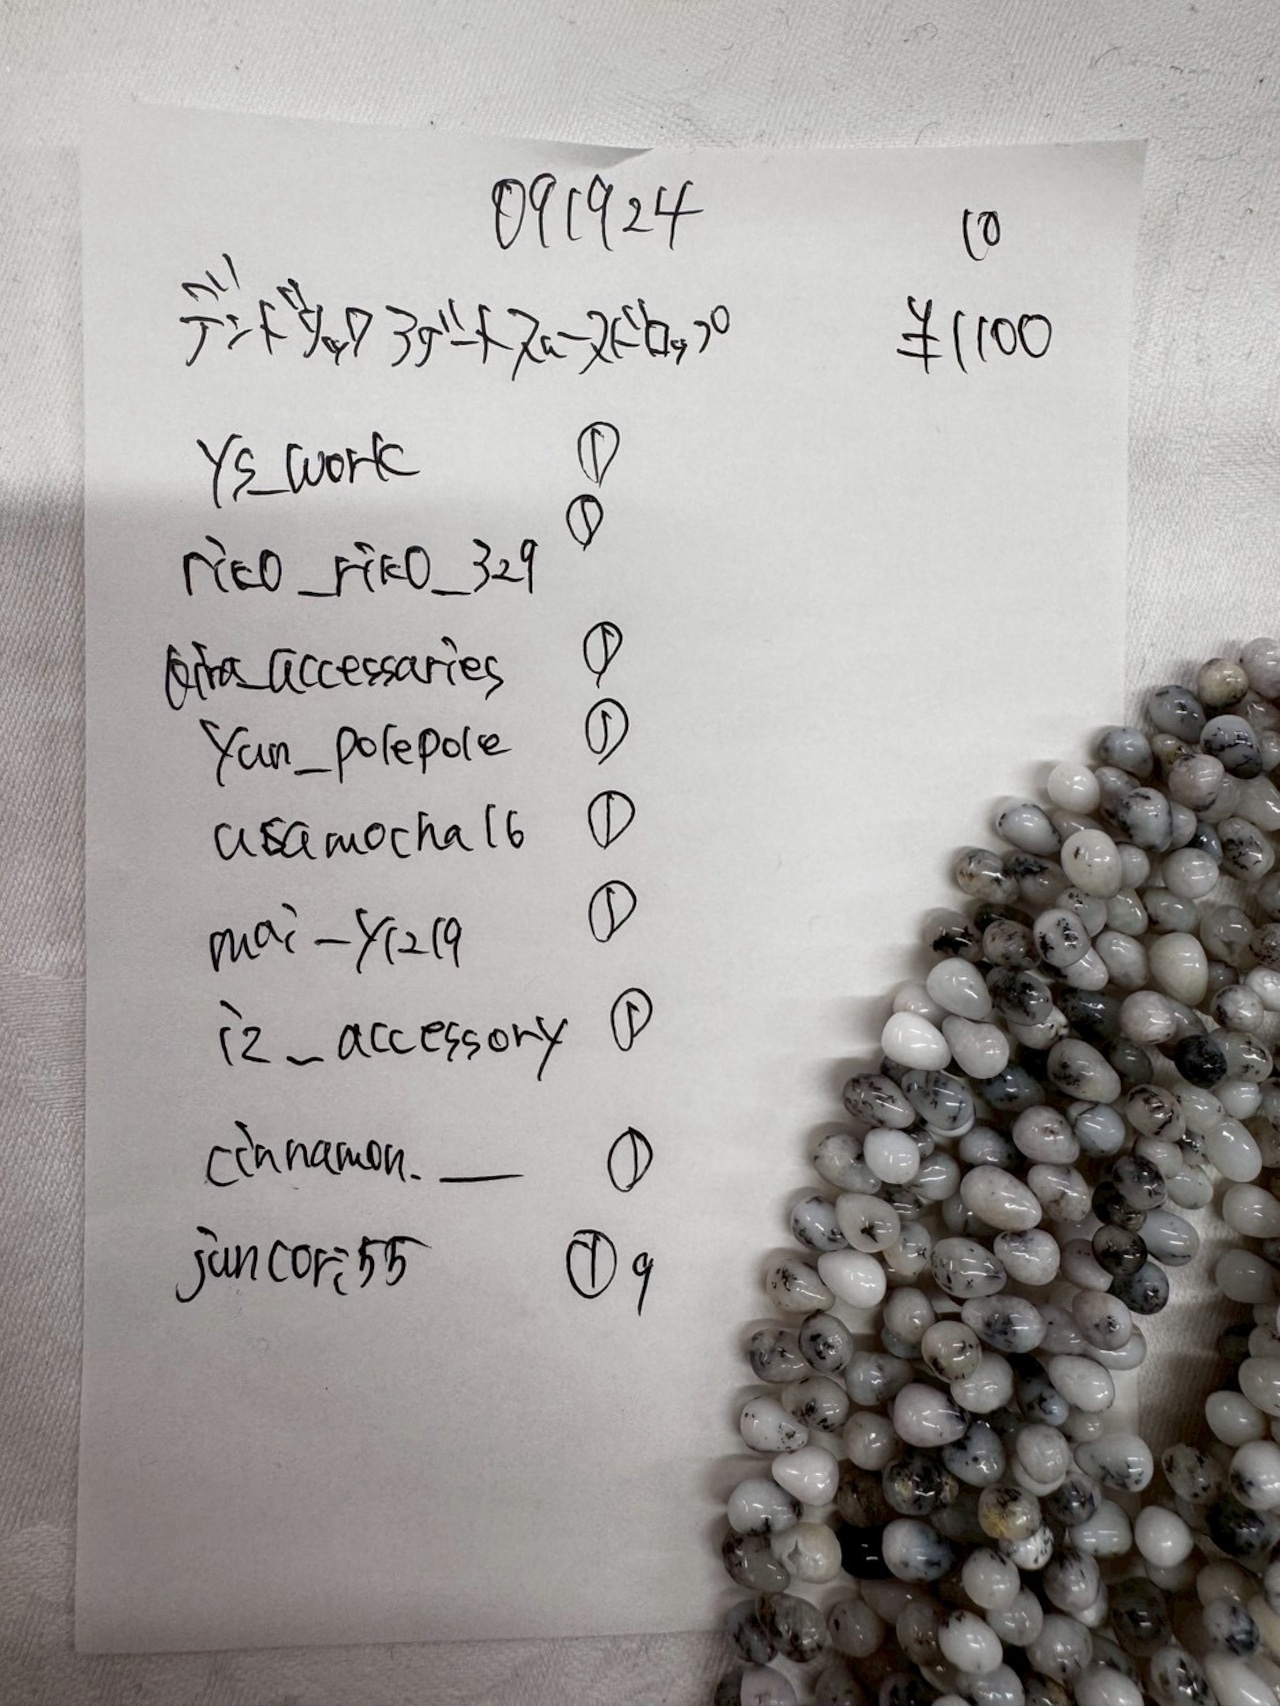 091924 10
デンドリック アゲート スムースドロップ ¥1100
ys_work ①
riko_riko_329 ①
qira_accessaries ①
yun_polepole ①
usamocha16 ①
mai-y1219 ①
iz_accessory ①
cinnamon.___ ①
juncori55 ① 9